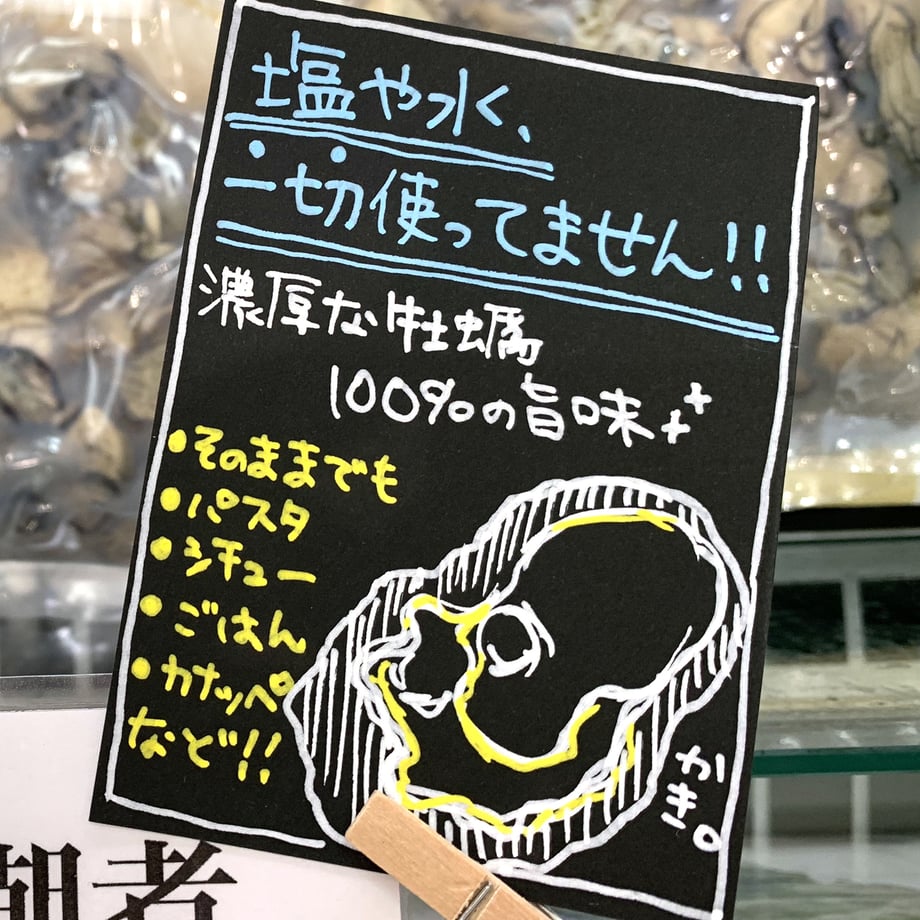 塩や水、
一切使ってません!!
濃厚な牡蠣
100%の旨味
・そのままでも
・パスタ
・シチュー
・ごはん
・カナッペ
など!!
かき。